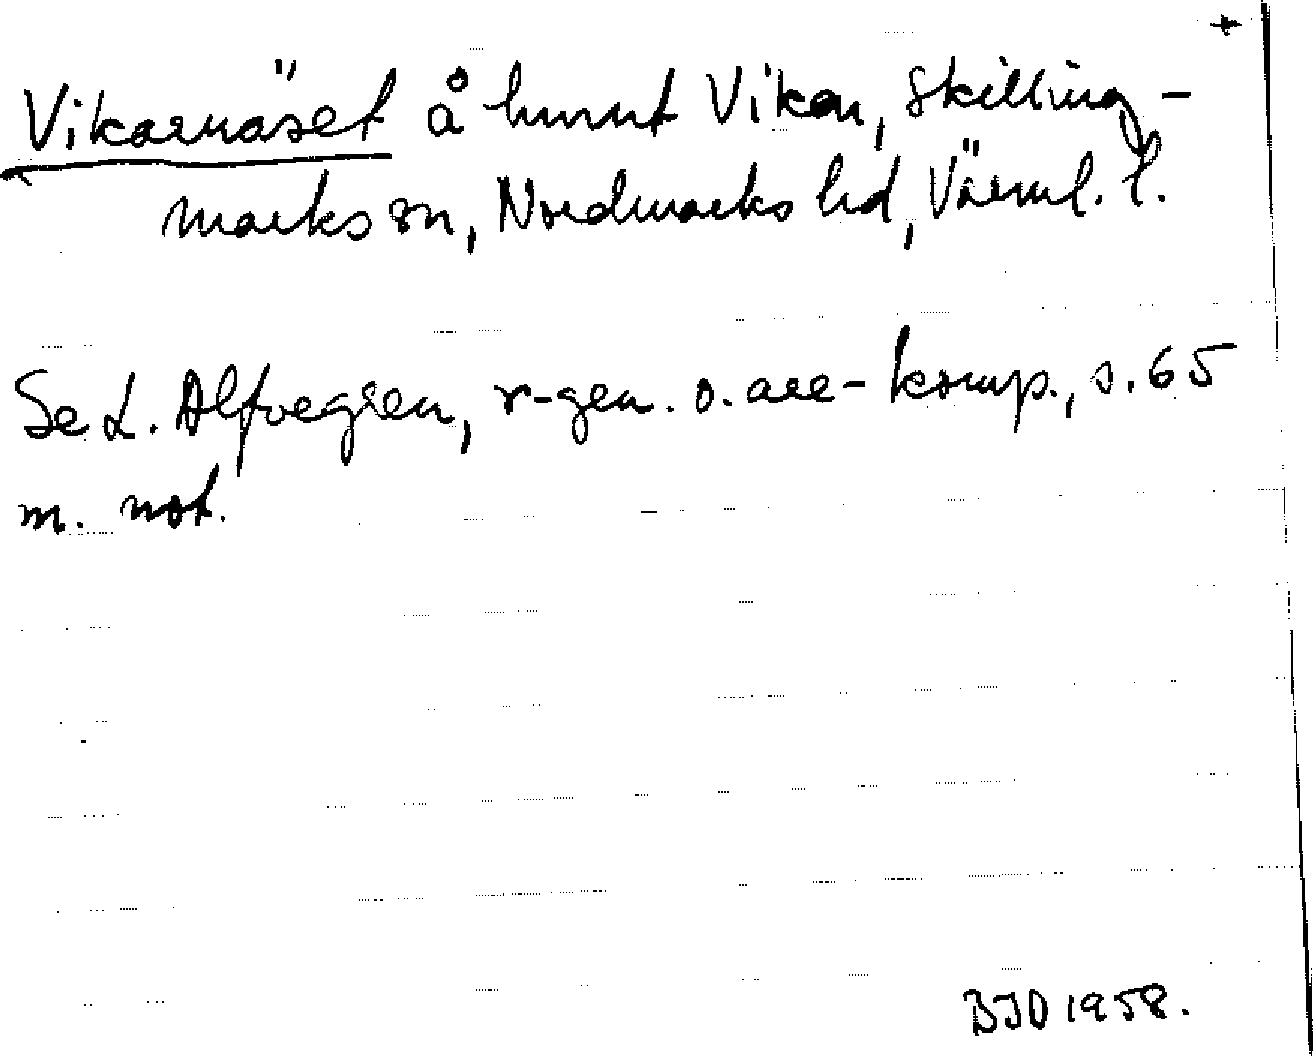 +
Vikarnäset å hmnt Vikan, Skilling-
marks sn, Nordmarks hd, Värml. l.
Se L. Alfvegren, r-gen. o. are-komp., s. 65
m. not.
BJD 1958.